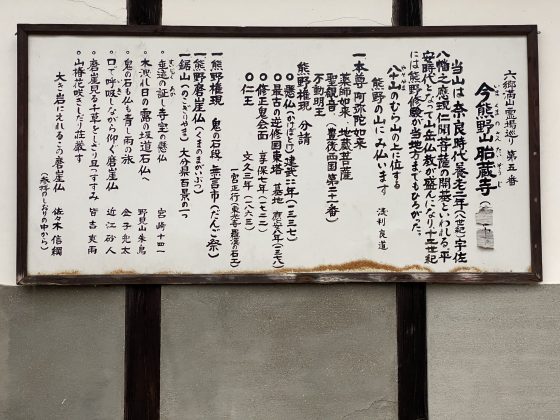 六郷満山霊場巡り 第五番
今熊野山胎蔵寺
いまくまのさんたいぞうじ
当山は奈良時代養老二年(八世紀)宇佐
八幡之応現、仁聞菩薩の開基といわれる。平
安時代となって山岳仏教が盛んになり、十二世紀
には熊野修験が当地方までもひろがった。
八十のむら山の上に位する
熊野の山にみ仏います
浅利良道
一本尊 阿弥陀如来
薬師如来、地蔵菩薩
聖観音(豊後西国第二十一番)
不動明王
熊野権現 分請
○懸仏(かけぼとけ)建武二年(一三三七)
○最古の逆修国東塔 墓地
○修正鬼会面 享保七年(一七二二)
○仁王 文久三年(一八六三)
一熊野権現 鬼の石段 無言市(だんご祭)
一熊野磨崖仏(くまのまがいぶつ)
一鋸山(のこぎりやま)大分県百景の一つ
○垂迹の証し寺宝の懸仏 宮崎十四一
○木洩れ日の露の坂道石仏へ 野見山朱鳥
○鬼の石段も青し雨の旅 金子兜太
○口で呼吸しながら仰ぐ磨崖仏 近江砂人
○磨崖見る千草をしとり且つすすみ 皆吉爽雨
○山椿花咲きしだり荘厳す
大き岩にえれるこの磨崖仏 佐々木信綱